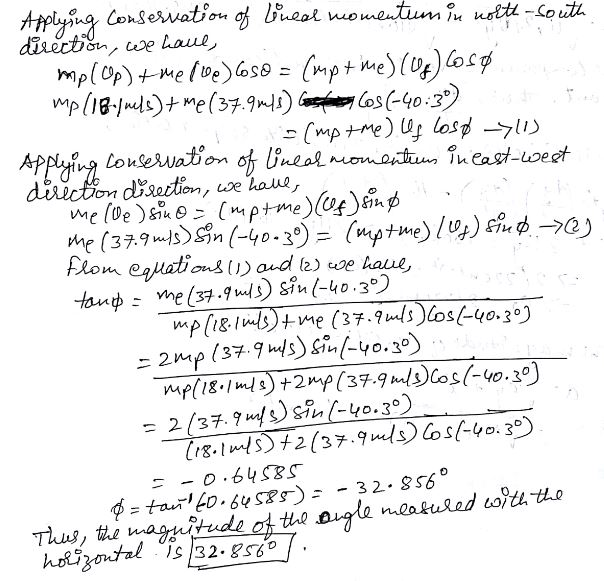 Applying Conservation of linear momentum in north-South
direction, we have,
mp(υp) + me(υe) Cosθ = (mp + me) (υf) Cosφ
mp(18.1m/s) + me(37.9m/s) Cos(-40.3°)
= (mp + me) υf Cosφ → (1)
Applying conservation of linear momentum in east-west
direction direction, we have,
me(υe) Sinθ = (mp+me)(υf) Sinφ
me(37.9m/s) Sin(-40.3°) = (mp+me)(υf) Sinφ → (2)
From equations (1) and (2) we have,
tanφ = me(37.9m/s) Sin(-40.3°)
mp(18.1m/s) + me(37.9m/s) Cos(-40.3°)
= 2mp(37.9m/s) Sin(-40.3°)
mp(18.1m/s) + 2mp(37.9m/s) Cos(-40.3°)
= 2(37.9m/s) Sin(-40.3°)
(18.1m/s) + 2(37.9m/s) Cos(-40.3°)
= -0.64585
φ = tan⁻¹(-0.64585) = -32.856°
Thus, the magnitude of the angle measured with the
horizontal is 32.856°.